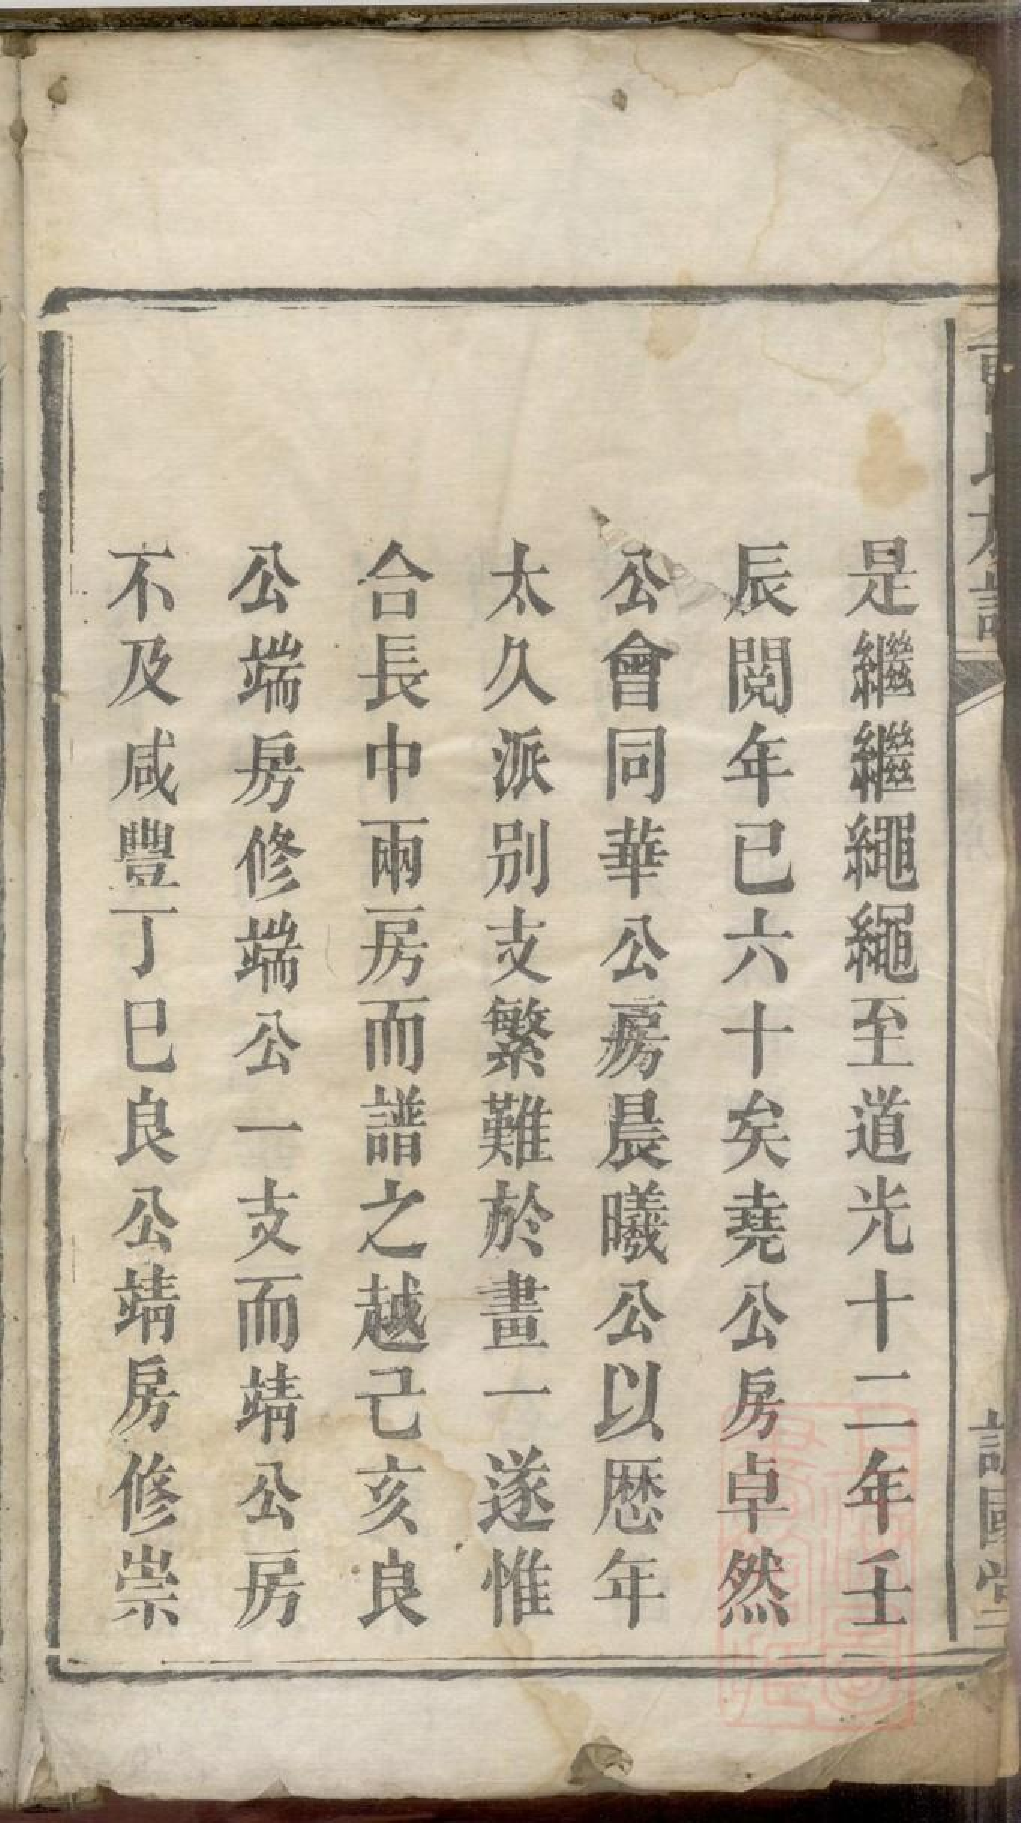 是繼繼繩繩至道光十二年壬
辰閱年已六十矣堯公房卓然
公會同華公房晨曦公以歴年
太久派別支繁難於畫一遂惟
合長中兩房而譜之越己亥良
公端房修端公一支而靖公房
不及咸豐丁巳良公靖房修崇